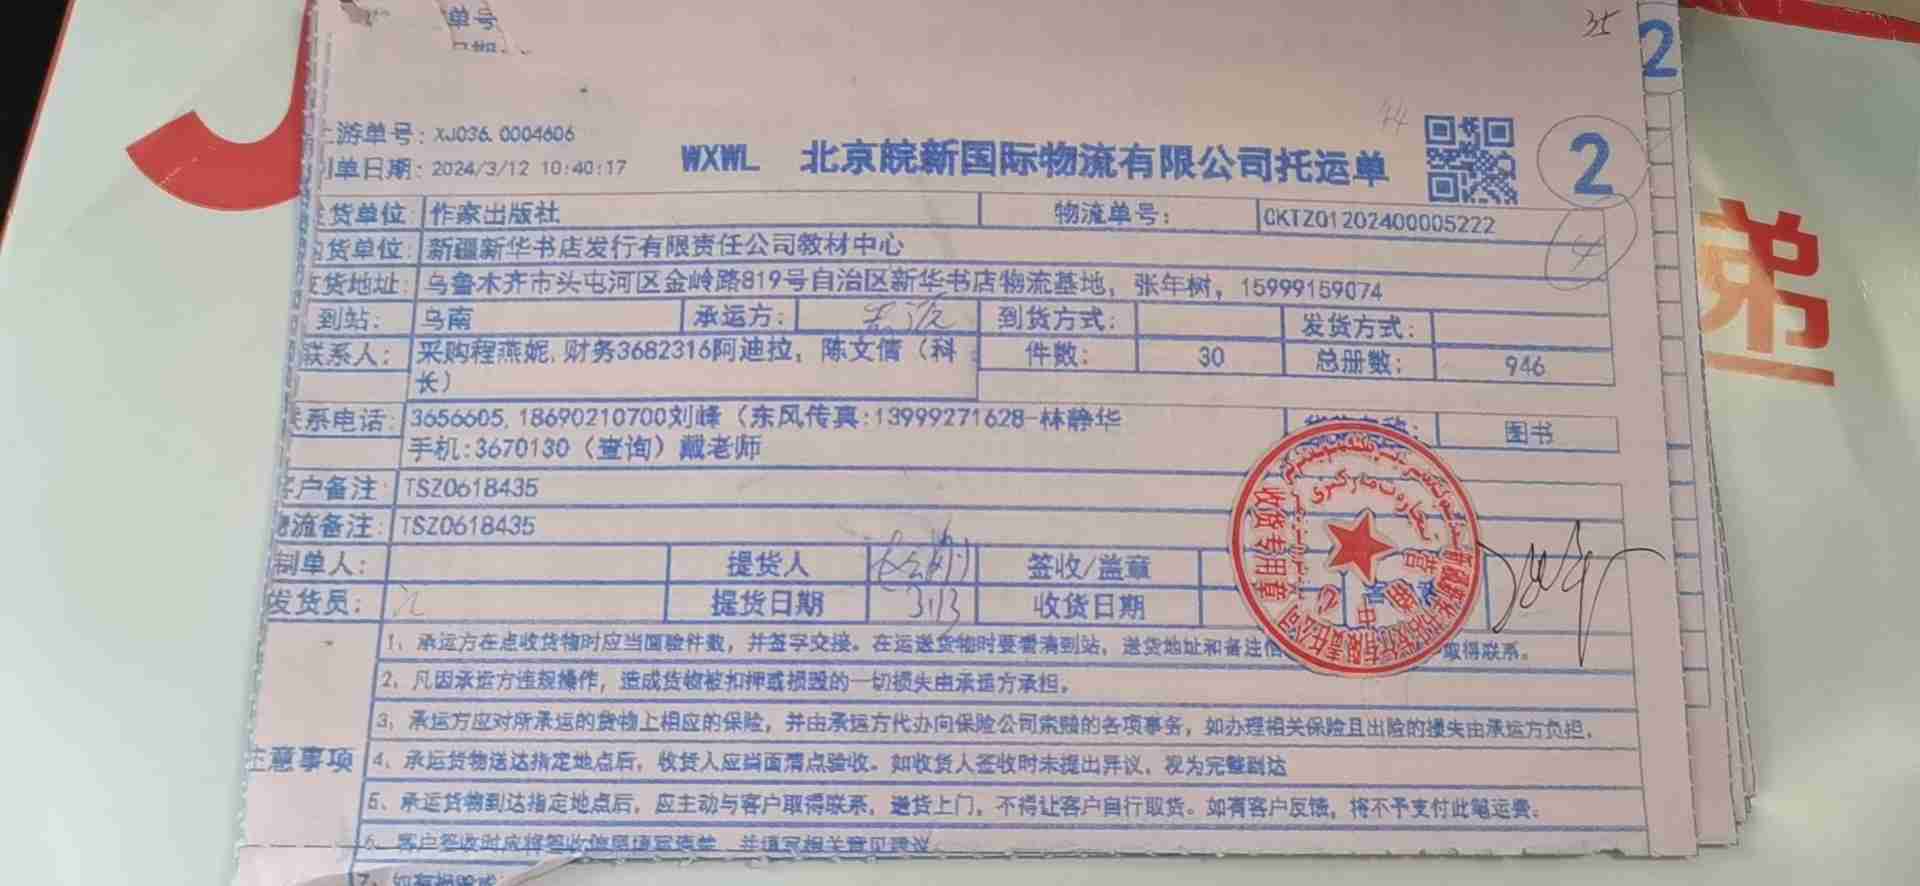 单号
35
2
上游单号: XJ036.0004606
制单日期: 2024/3/12 10:40:17
WXWL 北京皖新国际物流有限公司托运单
2
44
发货单位: 作家出版社 物流单号: CKTZ01202400005222
购货单位: 新疆新华书店发行有限责任公司教材中心
4
收货地址: 乌鲁木齐市头屯河区金岭路819号自治区新华书店物流基地, 张年树, 15999159074
到站: 乌南 承运方: 到货方式: 发货方式:
联系人: 采购程燕妮,财务3682316阿迪拉, 陈文倩（科
长） 件数: 30 总册数: 946
联系电话: 3656605, 18690210700刘峰（东风传真:13999271628-林静华
手机:3670130（查询）戴老师
图书
客户备注: TSZ0618435
物流备注: TSZ0618435
制单人: 提货人 签收/盖章
发货员: 江 提货日期 3.13 收货日期
收货专用章
注意事项
1、承运方在点收货物时应当面验件数, 并签字交接。在运送货物时要看清到站, 送货地址和备注信 取得联系。
2、凡因承运方违规操作, 造成货物被扣押或损毁的一切损失由承运方承担。
3、承运方应对所承运的货物上相应的保险, 并由承运方代办向保险公司索赔的各项事务, 如办理相关保险且出险的损失由承运方负担。
4、承运货物送达指定地点后, 收货人应当面清点验收。如收货人签收时未提出异议, 视为完整到达
5、承运货物到达指定地点后, 应主动与客户取得联系, 送货上门, 不得让客户自行取货。如有客户反馈, 将不予支付此笔运费。
6、客户签收时应将签收信息填写清楚, 并填写相关意见建议
递